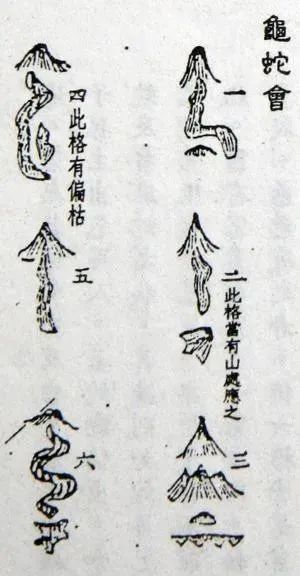 龜蛇會
一
二此格當有山處應之
三
四此格有偏枯
五
六